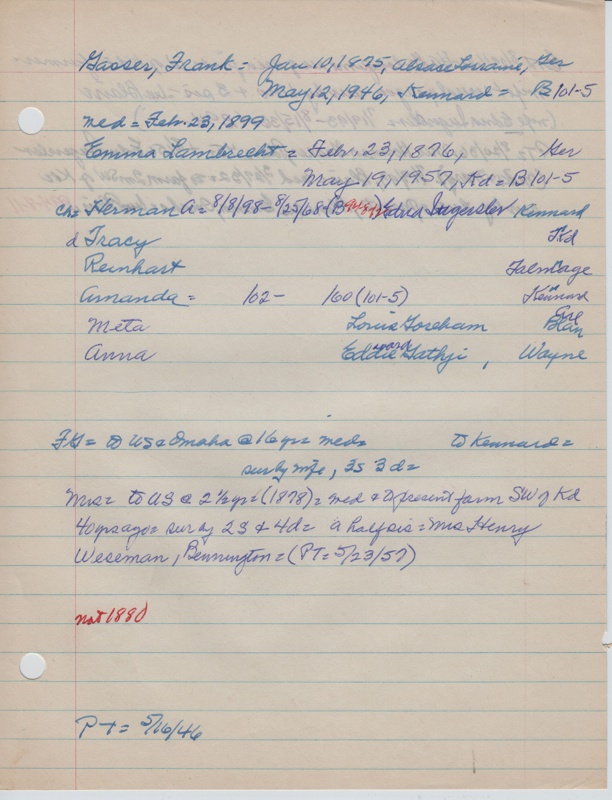 Gasser, Frank = Jan 10, 1875, Alsace Lorraine, Ger
May 12, 1946, Kennard = B 101-5
med = Feb. 23, 1899
Emma Lambrecht = Feb. 23, 1876, Ger
May 19, 1957, Kd = B 101-5
ch = Herman A = 8/8/98 - 8/25/68 (B Edna Ingersler Kennard
d Tracy Kd
Reinhart Talmage
Amanda = 102 - 160 (101-5) Kennard
Meta Louis Goreham Blair
Anna Eddie Gathji, Wayne
FG = to US & Omaha @ 16 yrs = med = to Kennard =
sur by wife, 3S 3d =
Mrs = to US @ 2½ yrs = (1878) = med & to present farm SW of Kd
40 yrs ago = sur by 2S & 4d = a half sis = Mrs Henry
Weseman, Bennington = (PT = 5/23/57)
not 1880
PT = 5/16/46